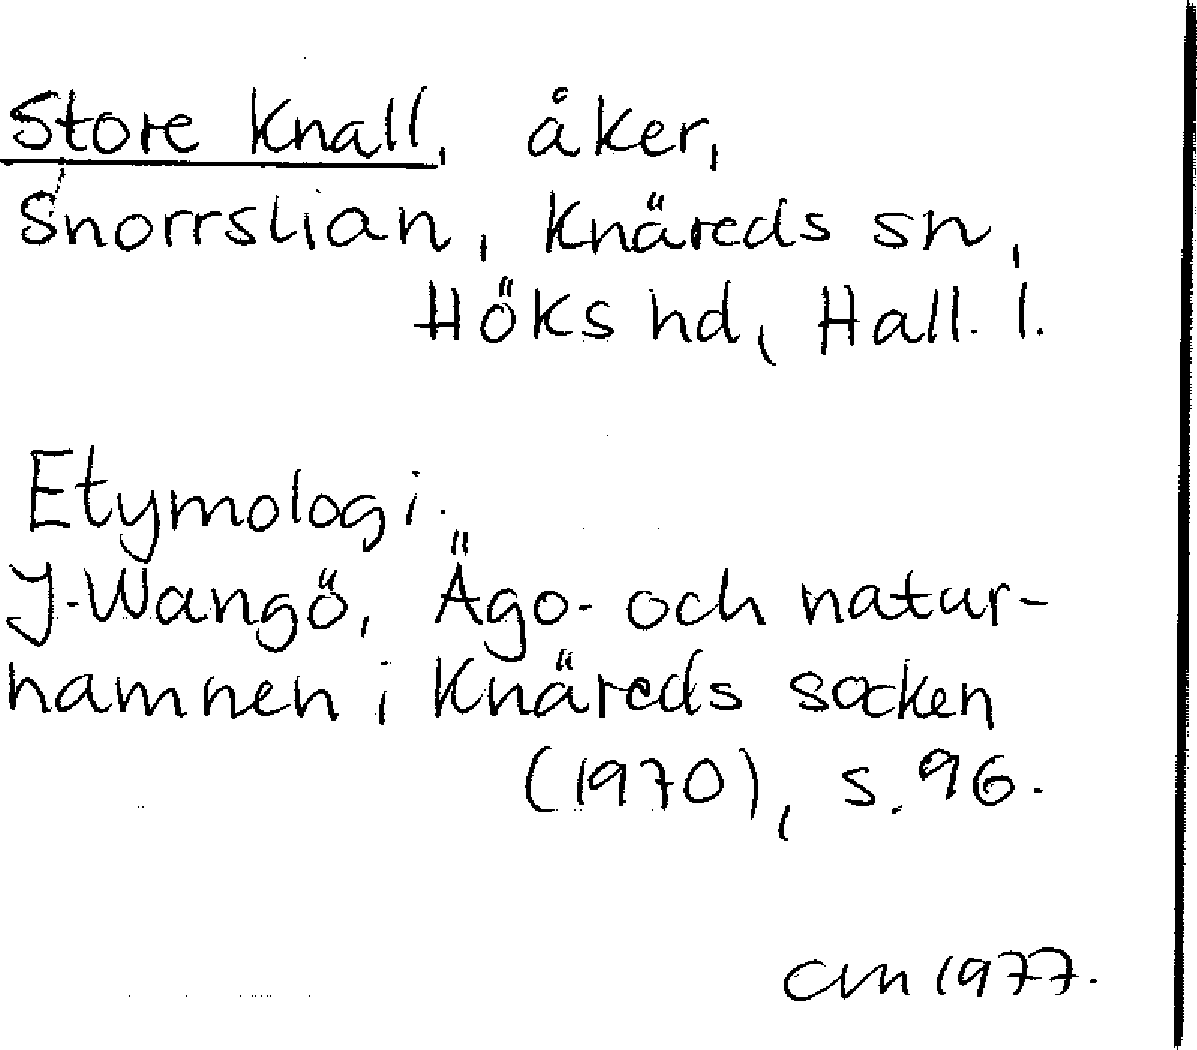 Store Knall, åker,
Snorrslian, Knäreds sn,
Höks hd, Hall. l.
Etymologi.
J. Wangö, Ägo- och natur-
namnen i Knäreds socken
(1970), s. 96.
CM 1977.